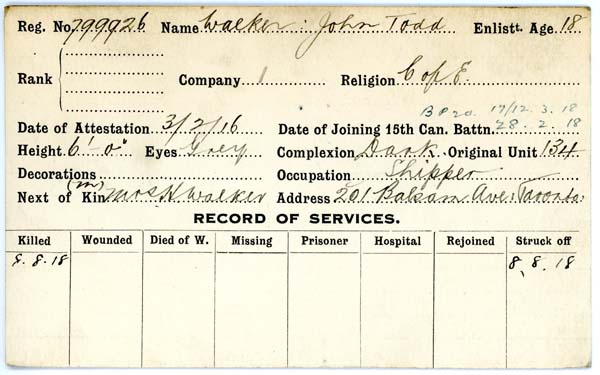 Reg. No. 799926 Name Walker: John Todd Enlistt. Age. 18
Rank Company 1 Religion C of E.
B Pzo. 17/12. 3. 18
Date of Attestation 3/2/16 Date of Joining 15th Can. Battn. 28. 2. 18
Height 6'-0" Eyes Grey Complexion Dark Original Unit 134
Decorations Occupation Shipper
(m)
Next of Kin Mrs H Walker Address 201 Balsam Ave: Toronto:
RECORD OF SERVICES.
Killed Wounded Died of W. Missing Prisoner Hospital Rejoined Struck off
8. 8. 18 8. 8. 18